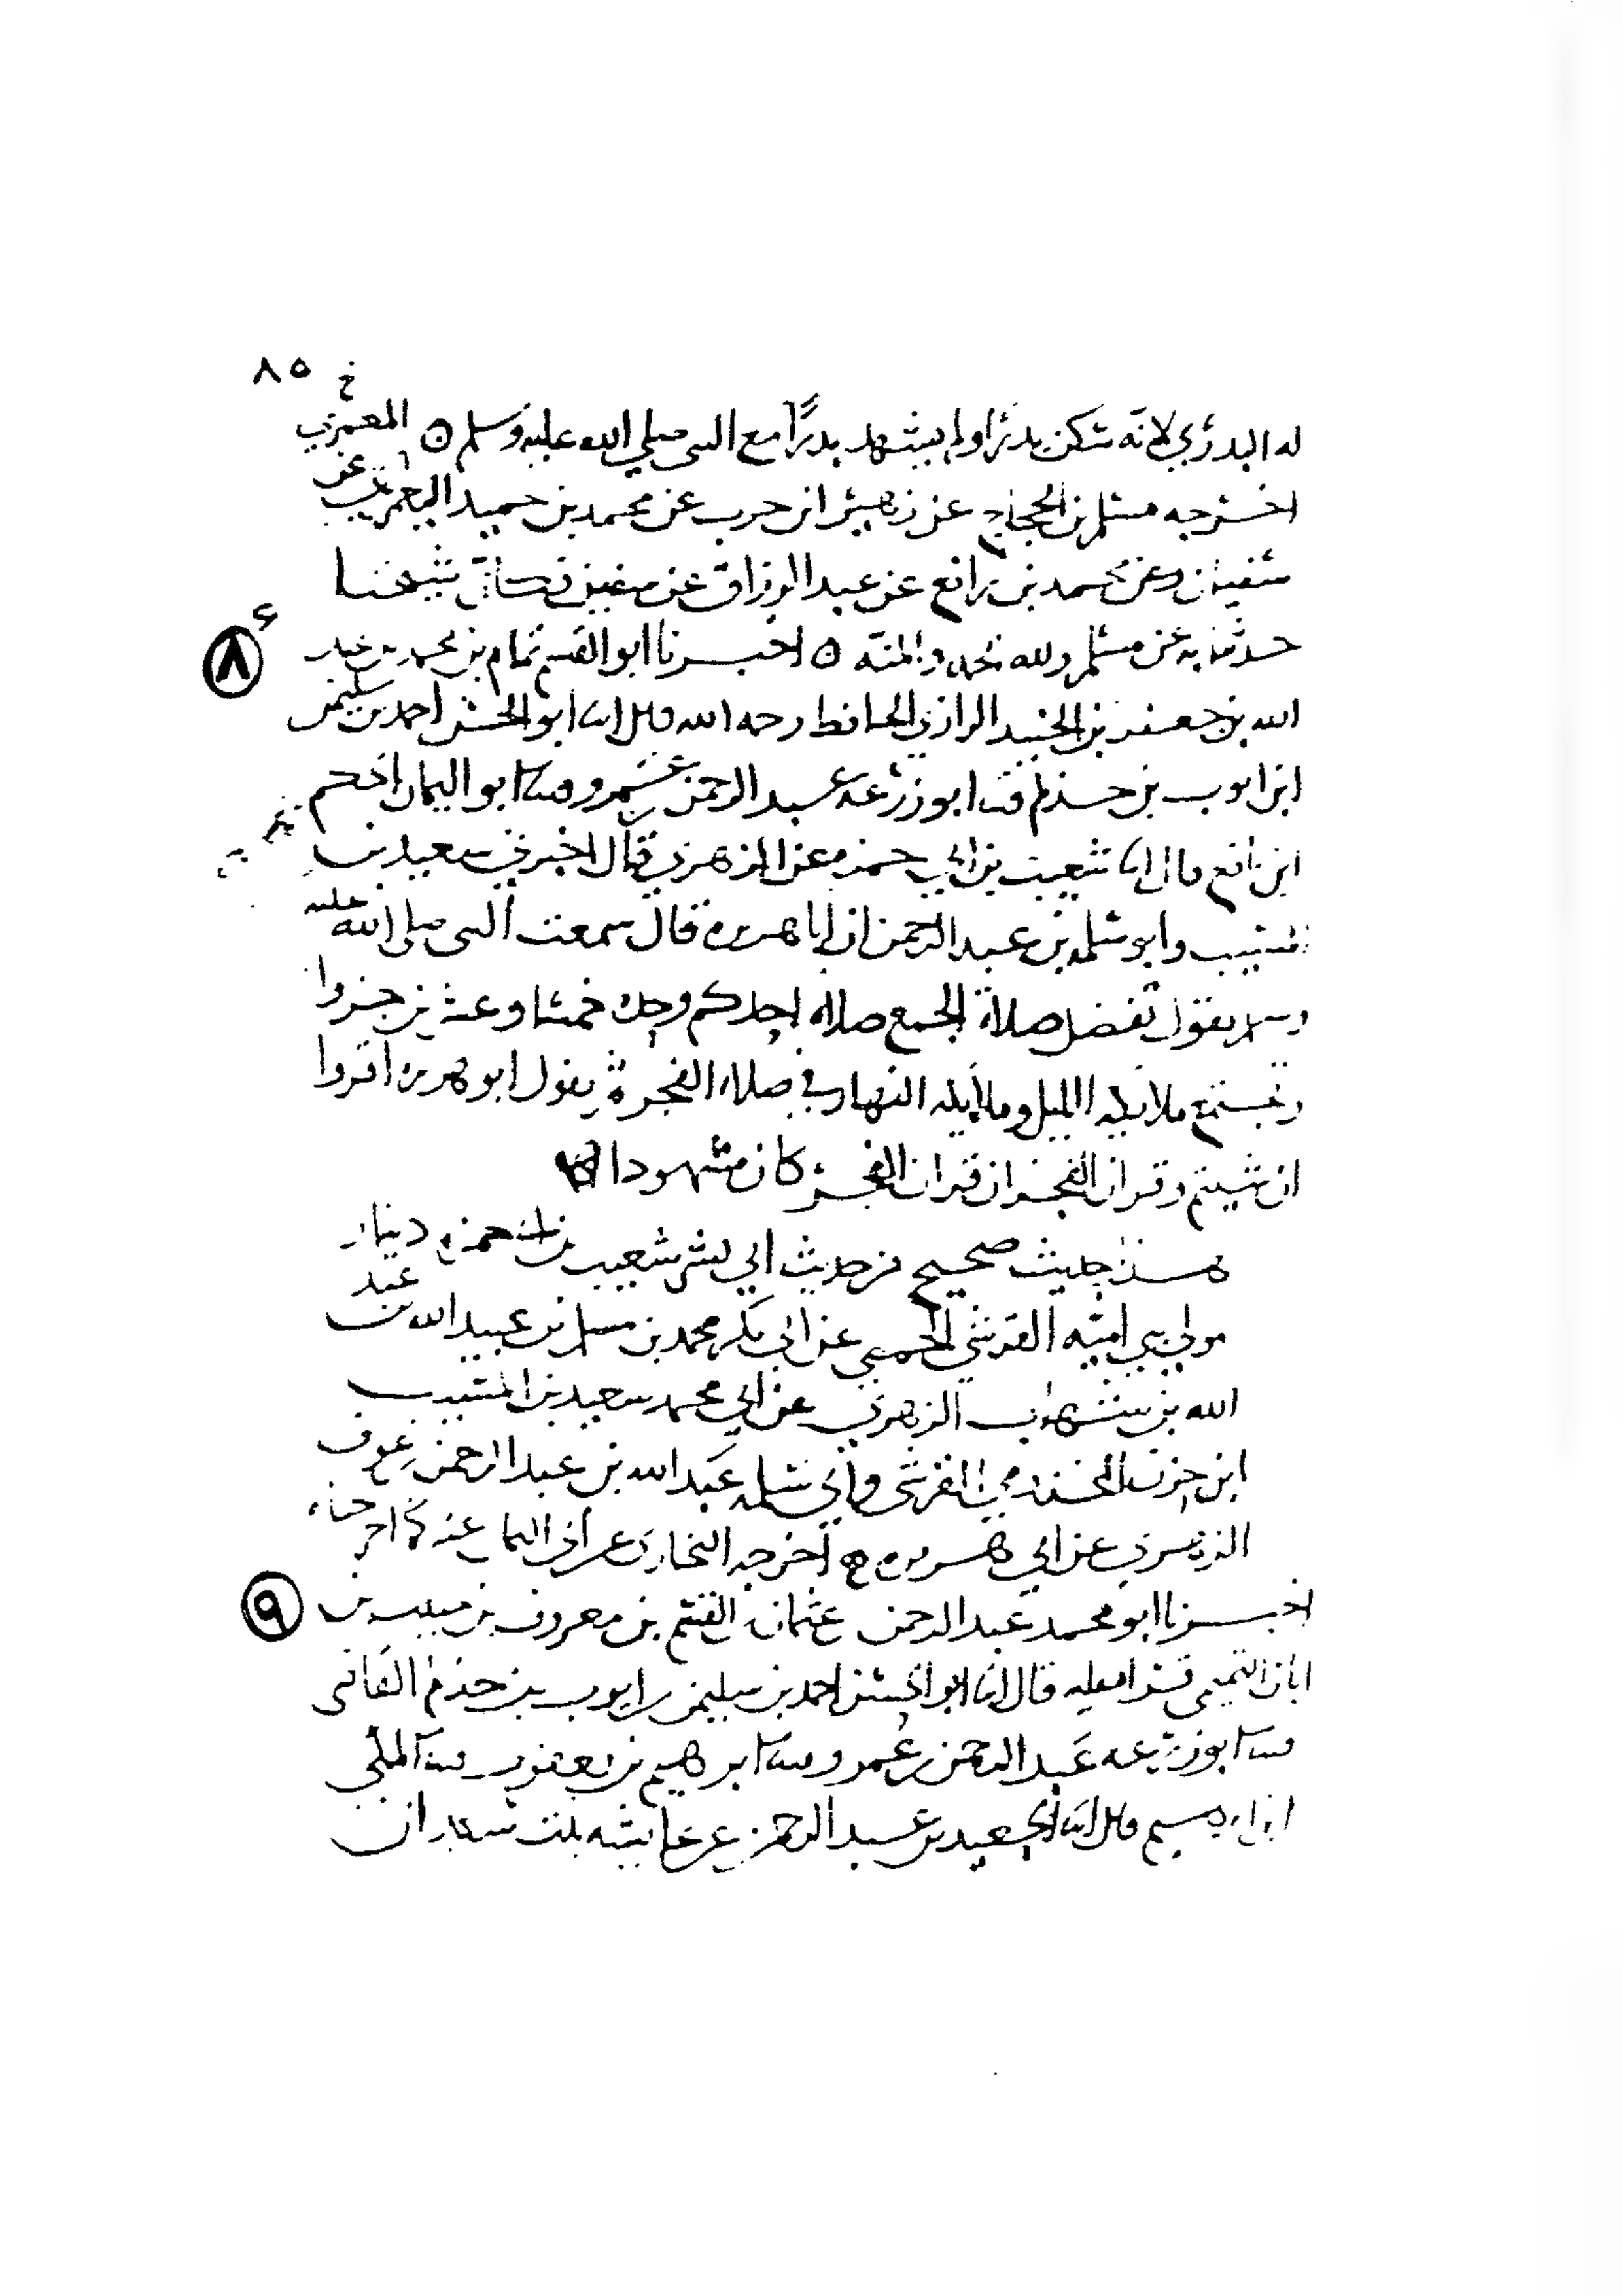 ٨٥
خ
له البدري لانه سكن بدرا ولم يشهد بدرًا مع النبي صلى الله عليه وسلم ٥ المعمري
اخرجه مسلم بن الحجاج عن زهير ابن حرب عن محمد بن حميد اليعمري عن
سفيان وعن محمد بن رافع عن عبد الرزاق عن سفين فكان شيخنا
حدثنا به عن مسلم ولله الحمد والمنه ٥ اخبرنا ابو القسم تمام بن محمد بن عبد
٨
الله بن جعفر بن الجنيد الرازي الحافظ رحمه الله قال انا ابو الحسن احمد بن سليمن
ابن ايوب بن حذلم ثنا ابو زرعه عبد الرحمن بن عمرو ثنا ابو اليمان الحكم
ابن نافع قال انا شعيب بن ابي حمزه عن الزهري قال اخبرني سعيد بن
المسيب وابو سلمه بن عبد الرحمن ان ابا هريره قال سمعت النبي صلى الله عليه
وسلم يقول تفضل صلاة الجمع صلاه احدكم وحده خمسا وعشرين جزوا
وتجتمع ملائكه الليل وملائكه النهار في صلاه الفجر ثم يقول ابو هريره اقروا
ان شيتم وقران الفجر ان قران الفجر كان مشهودا
هذا حديث صحيح من حديث ابي بشر شعيب بن ابي حمزه دينار
مولى بني اميه القرشي الحمصي عن ابي بكر محمد بن مسلم بن عبيد الله بن عبد
الله بن شهاب الزهري عن ابي محمد سعيد بن المسيب
ابن حزن المخزومي القرشي وابي سلمه عبد الله بن عبد الرحمن بن عوف
الزهري عن ابي هريره اخرجه البخاري عن ابي اليمان عنه كما اخرجناه
٩
اخبرنا ابو محمد عبد الرحمن بن عثمان بن القسم بن معروف بن حبيب بن
ابان التميمي قراه عليه قال انا ابو الحسن احمد بن سليمن بن ايوب بن حذلم القاضي
ثنا ابو زرعه عبد الرحمن بن عمرو ثنا ابرهيم بن يعقوب ثنا المكي
ابن ابرهيم قال انا الجعيد بن عبد الرحمن عن عايشه بنت سعد ان